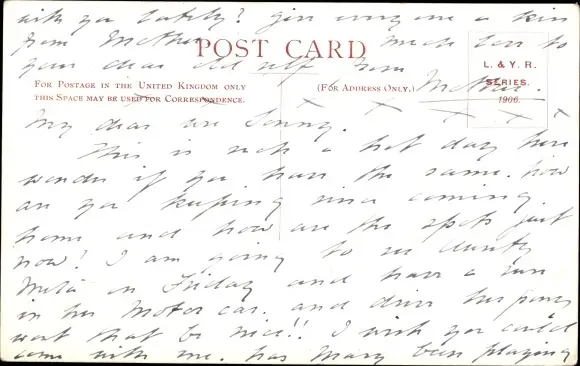 with you lately? give everyone a kiss
from Mother much love to
your dear old self from
Mother.
POST CARD
L. & Y. R.
SERIES.
1906.
FOR POSTAGE IN THE UNITED KINGDOM ONLY
THIS SPACE MAY BE USED FOR CORRESPONDENCE.
(FOR ADDRESS ONLY.)
x x x x x
My dear wee Sonny.
This is such a hot day here
wonder if you have the same. how
are you keeping since coming
home and how are the spots just
now? I am going to see Aunty
Meta on Friday and have a run
in her Motor car. and drive her pony
wont that be nice!! I wish you could
come with me. has Mary been playing